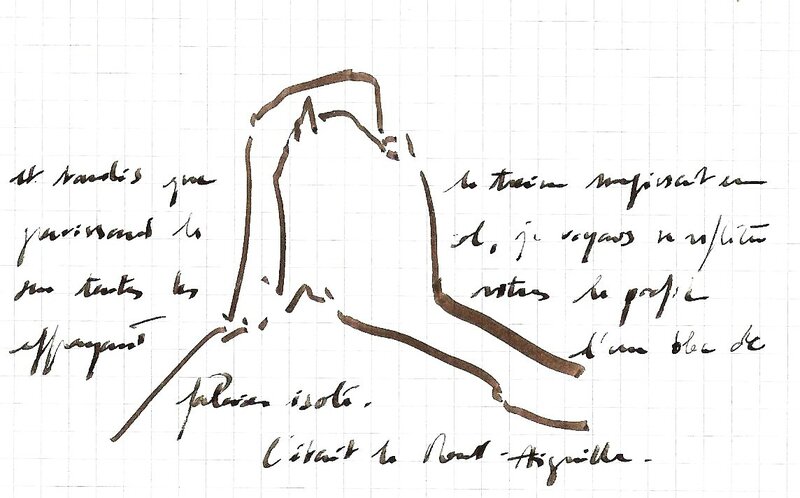 et tandis que le train mugissait en
franchissant le col, je voyais se refléter
sur toutes les vitres le profil
effrayant d'un bloc de
falaise isolé.
C'était le Mont-Aiguille.